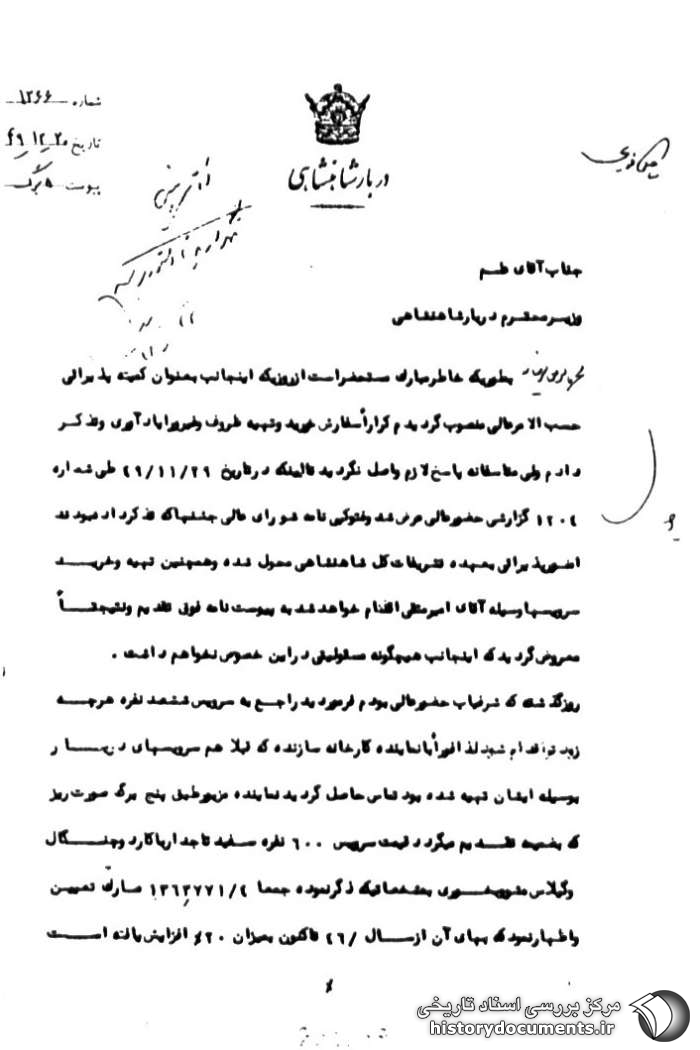 شماره ۱۲۶۶
تاریخ ۲۰-۱۲-۴۹
پیوست ۵ برگ
دربار شاهنشاهی
جناب آقای علم
وزیر محترم دربار شاهنشاهی
بطوریکه خاطر مبارک مستحضر است از روزیکه اینجانب بعنوان کمیته پذیرائی
حسب الامر عالی منصوب گردیدم کراراً سفارش خرید و تهیه ظروف وغیره را یادآوری وتذکر
دادم ولی متاسفانه پاسخ لازم واصل نگردید تا اینکه در تاریخ ۴۹/۱۱/۲۹ طی شماره
۱۲۰۴ گزارشی حضور عالی عرض شد وفتوکپی نامه شورای عالی جشنها که تذکر داده بودند
امور پذیرائی بعهده تشریفات کل شاهنشاهی محول شده وهمچنین تهیه وخرید
سرویسها وسیله آقای امیرمتقی اقدام خواهد شد به پیوست نامه فوق تقدیم ونتیجتاً
معروض گردید که اینجانب هیچگونه مسئولیتی در این خصوص نخواهم داشت .
روز گذشته که شرفیاب حضور عالی بودم فرمودید راجع به سرویس ششصد نفره هرچه
زودتر اقدام شود لذا فوراً با نماینده کارخانه سازنده که قبلا هم سرویسهای دربار
بوسیله ایشان تهیه شده بود تماس حاصل گردید نماینده مزبور طبق پنج برگ صورت ریز
که بضمیمه تقدیم میگردد قیمت سرویس ۶۰۰ نفره سفید تاجدار با کارد وچنگال
وگیلاس مشروبخوری بمشخصاتیکه ذکر نموده جمعا ۱۳۶۳۷۷۱/۴ مارک تعیین
واظهار نمود که بهای آن از سال ۴۶/ تاکنون بمیزان ۲۰٪ افزایش یافته است
مرکز بررسی اسناد تاریخی
historydocuments.ir